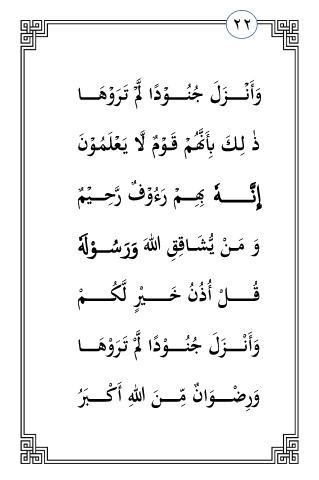 ٢٢
وَأَنْزَلَ جُنُوْدًا لَّمْ تَرَوْهَا
ذٰ لِكَ بِأَنَّهُمْ قَوْمٌ لَّا يَعْلَمُوْنَ
إِنَّهٗ بِهِمْ رَءُوْفٌ رَّحِيْمٌ
وَ مَنْ يُّشَاقِقِ اللهَ وَرَسُوْلَهٗ
قُلْ أُذُنُ خَيْرٍ لَّكُمْ
وَأَنْزَلَ جُنُوْدًا لَّمْ تَرَوْهَا
وَرِضْوَانٌ مِّنَ اللهِ أَكْبَرُ